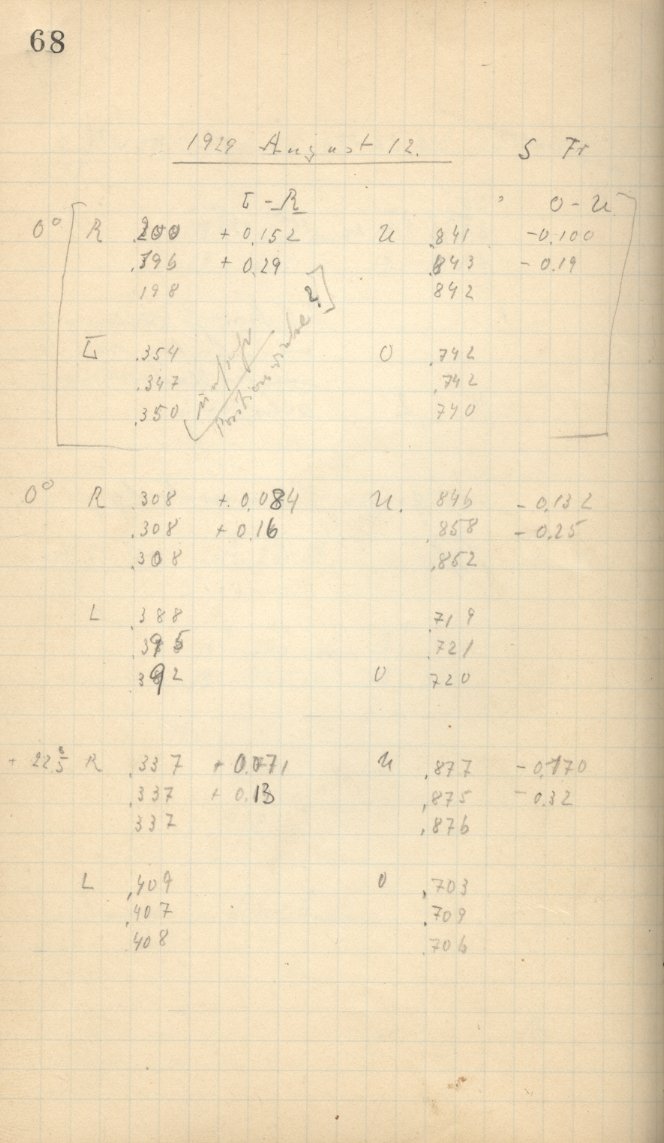 68
1929 August 12. S Fr
L - R O - U
0° R .200 + 0,152 U .841 -0,100
.196 + 0,29 .843 - 0,19
198 842
2.
L .354 O .742
.347 .742
.350 740
Positionswinkel
0° R .308 + 0,084 U. 846 - 0,132
.308 + 0,16 .858 - 0,25
.308 .852
L .388 .719
.395 .721
.392 O 720
+ 22°5 R .337 + 0,071 U .877 - 0,170
.337 + 0,13 .875 - 0,32
337 .876
L .409 O .703
.407 .709
.408 .706